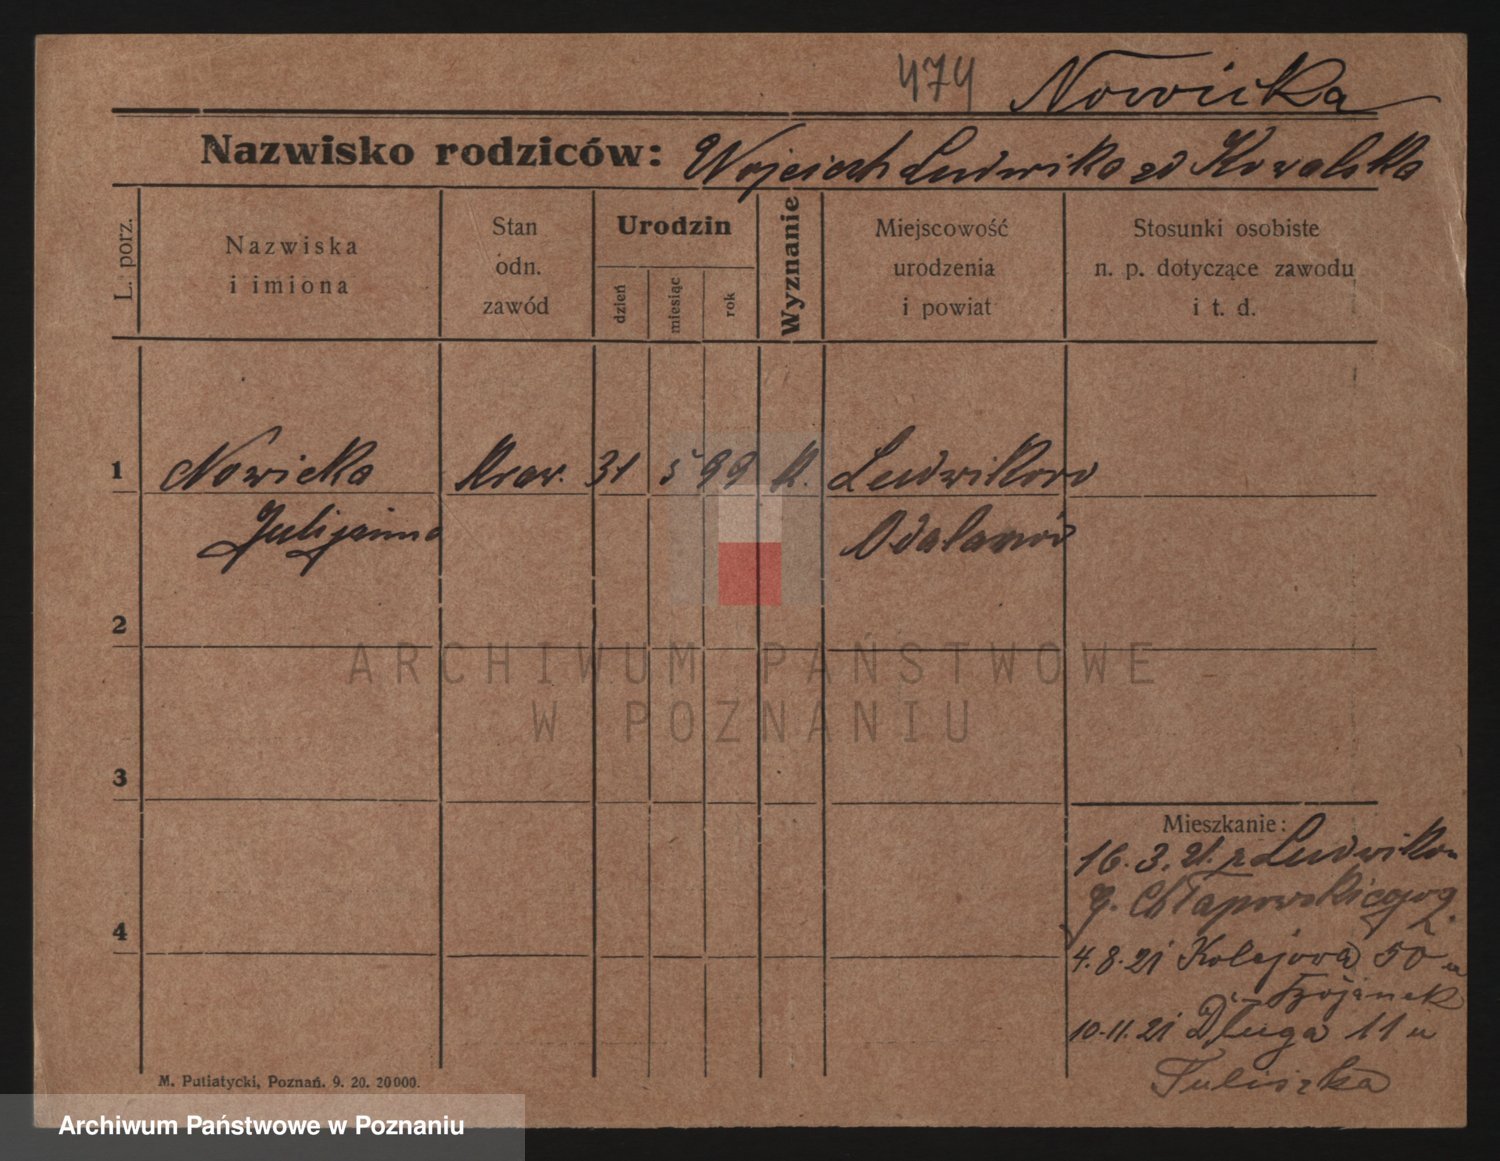 474 Nowicka
Nazwisko rodziców: Wojciech Ludwika zd Kowalska
L. porz.
Nazwiska
i imiona
Stan
odn.
zawód
Urodzin
dzień
miesiąc
rok
Wyznanie
Miejscowość
urodzenia
i powiat
Stosunki osobiste
n. p. dotyczące zawodu
i t. d.
1 Nowicka Kraw. 31 5 99 K. Ludwikowo
Julijanna Odalanów
2
3
4
Mieszkanie:
16.3.21. z Ludwikow
Chłapowskiego 2.
4.8.21 Kolejowa 50 u
Trojanek
10.11.21 Długa 11 u
Tuliszka
M. Putiatycki, Poznań. 9. 20. 20000.
ARCHIWUM PAŃSTWOWE
W POZNANIU
Archiwum Państwowe w Poznaniu